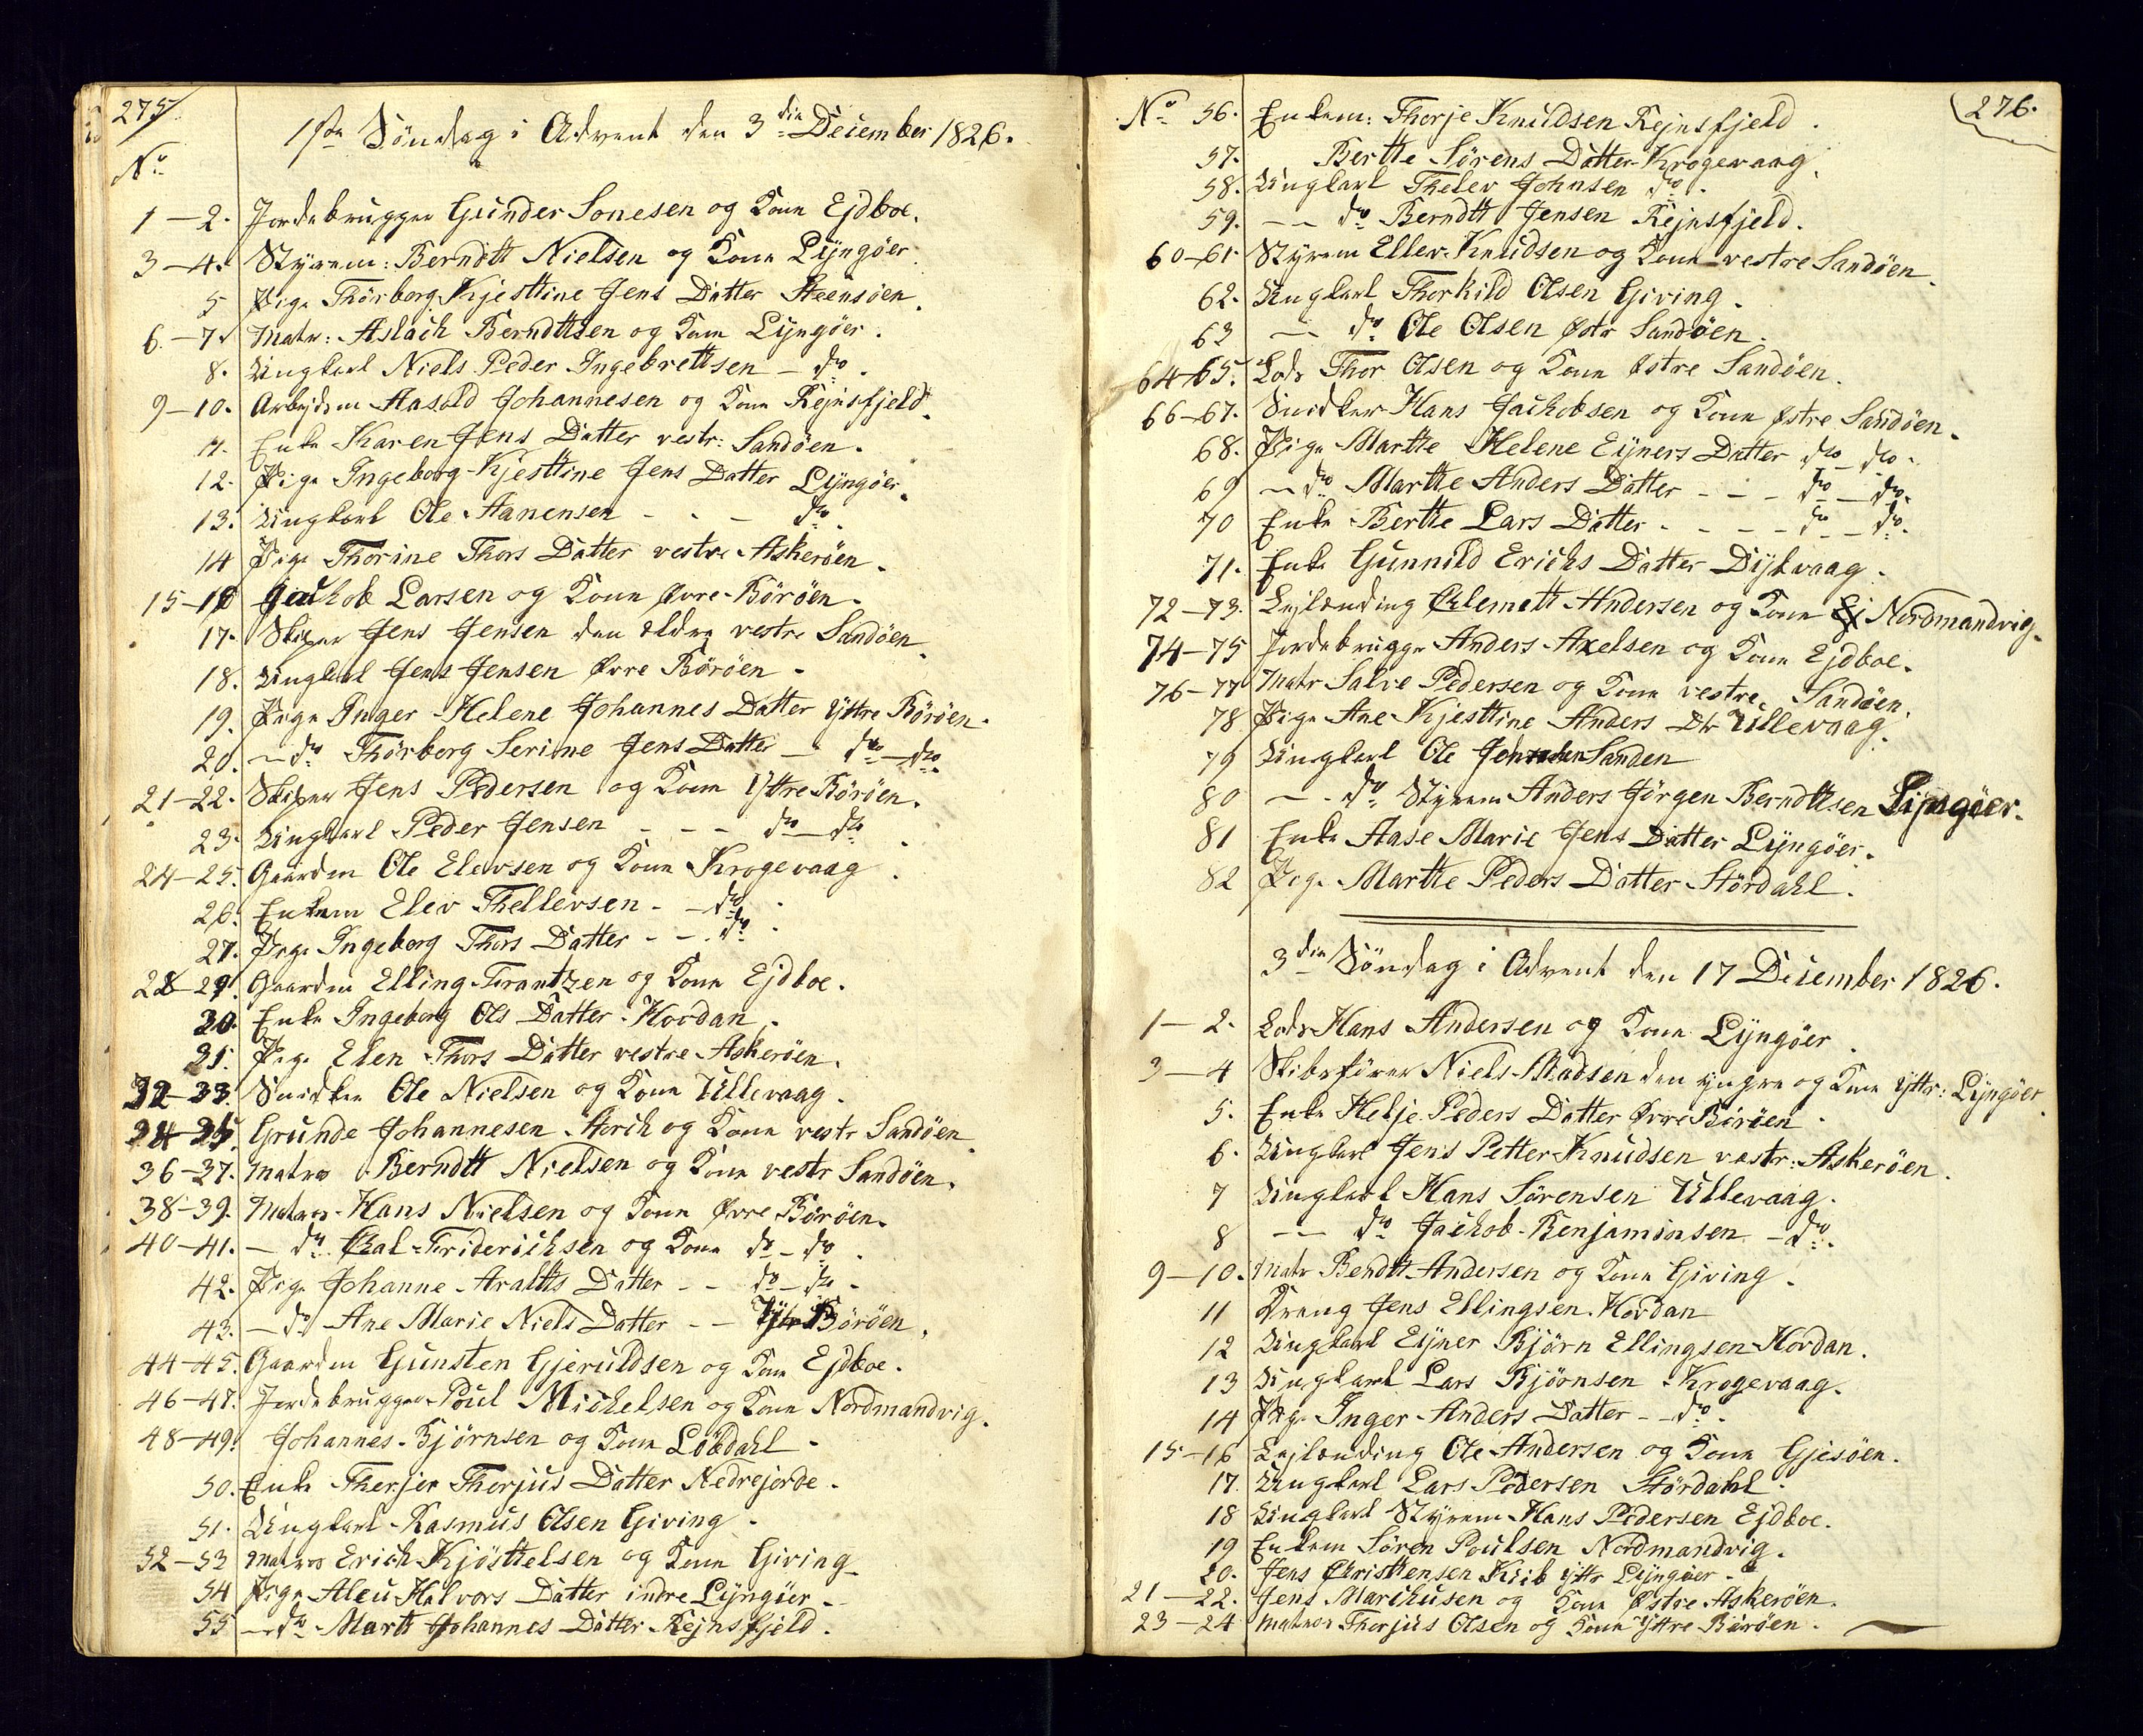 275
1ste Söndag i Advent den 3die December 1826.
No
1-2. Jordebrugger Gunder Sonesen og Kone Ejdboe.
3-4. Styrem: Berndtt Nielsen og Kone Lyngöer.
5 Pige Thörborg Kjesttine Jens Datter Steensöen.
6.-7. Matr: Aslach Berndttsen og Kone Lyngöer.
8. Ungkarl Niels Peder Ingebrettsen - do.
9-10. Arbejdsm Aasold Johannesen og Kone Rejnsfjeld.
11. Enke Karen Jens Datter vestr: Sandöen.
12. Pige Ingeborg Kjesttine Jens Datter Lyngöer.
13. Ungkarl Ole Aanensen - - - do.
14 Pige Thorine Thors Datter vestre Askeröen.
15-16 Jachob Larsen og Kone Øvre Böröen.
17. Skiper Jens Jensen den ældre vestre Sandöen.
18. Ungkarl Jens Jensen Øvre Böröen -
19. Pige Inger Helene Johannes Datter Yttre Böröen.
20. - do Thörborg Serine Jens Datter - do - do.
21-22. Skiper Jens Pedersen og Kone Yttre Böröen.
23. Ungkarl Peder Jensen - - - do - do.
24-25. Gaardm Ole Elevsen og Kone Krogevaag.
26. Enkem Elev Thellevsen - - do.
27. Pige Ingeborg Thors Datter - - do.
28-29. Gaardm Elling Frantzen og Kone Ejdboe.
30. Enke Ingeborg Ols Datter Hovdan.
31. Pige Elen Thors Datter vestre Askeröen.
32-33. Snidker Ole Nielsen og Kone Ullevaag.
34-35 Grunde Johannesen Storch og Kone vestr Sandöen
36-37. Matros Berndtt Nielsen og Kone vestr Sandöen.
38-39. Matros Hans Nielsen og Kone Øvre Böröen.
40-41. - do Friderichsen og Kone do - do.
42. Pige Johanne Aratts Datter - - do - do -
43. - do Ane Marie Niels Datter - - Yttr Böröen.
44-45. Gaardm Gunsten Gjeruldsen og Kone Ejdboe.
46-47. Jordebrugger Poul Michelsen og Kone Nordmandvig.
48-49. Johannes Bjørnsen og Kone Lövdahl -
50. Enke Therjer Therjus Datter Nedrejorde.
51. Ungkarl Rasmus Olsen Giving -
52-53 Matros Erich Kjösttelsen og Kone Giving -
54 Pige Aleu Halvors Datter indre Lyngöer -
55 - do Martt Johannes Datter Rejnsfjeld.
276.
No 56. Enkem: Therje Knudsen Rejnsfjeld.
57. Bertte Sörens Datter Krogevaag.
58. Ungkarl Thelev Johnsen do.
59. - - do Berndtt Jensen Rejnsfjeld.
60-61. Styrem Ellev Knudsen og Kone vestre Sandöen.
62. Ungkarl Thorkild Olsen Giving.
63 - do Ole Olsen Østr Sandöen.
64-65. Lods Thor Olsen og Kone Østre Sandöen.
66-67. Snidker Hans Jachobsen og Kone Østre Sandöen.
68. Pige Martte Helene Eyners Datter do - do -
69 - do Martte Anders Datter - - - do - do.
70 Enke Bertte Lars Datter - - - - do - do.
71. Enke Gunnild Erichs Datter Dybvaag.
72-73. Lejlænding Clemett Andersen og Kone Nordmandvig.
74-75 Jordebrugger Anders Axelsen og Kone Ejdboe.
76-77 Matr Salve Pedersen og Kone vestre Sandöen.
78 Pige Ane Kjesttine Anders Dtr Ullevaag.
79 Ungkarl Ole Jensen Sanden
80 - - do Styrem Anders Jörgen Berndttsen Lyngöer.
81 Enke Aase Marie Jens Datter Lyngöer.
82 Pige Martte Peders Datter Stördahl.
3die Söndag i Advent den 17 December 1826.
1-2. Lods Hans Andersen og Kone Lyngöer.
3-4 Skibsförer Niels Madsen den yngre og Kone Yttr: Lyngöer.
5. Enke Helje Peders Datter Øvre Böröen.
6. Ungkarl Jens Petter Knudsen vestr: Askeröen.
7 Ungkarl Hans Sörensen Ullevaag.
8 - - do Jachob Benjaminsen - do.
9-10. Matr Bendtt Andersen og Kone Giving.
11 Dreng Jens Ellingsen Hovdan
12 Ungkarl Eyner Bjørn Ellingsen Hovdan.
13 Ungkarl Lars Bjöonsen Krogevaag.
14 Pige Inger Anders Datter - - do.
15-16 Lejlænding Ole Andersen og Kone Gjesöen.
17. Ungkarl Lars Pedersen Stördahl.
18 Ungkarl Styrem Hans Pedersen Ejdboe.
19 Enkem Sören Poulsen Nordmandvig.
20. Jens Christtensen Krib yttr Lyngöer -
21-22. Jens Marchusen og Kone Østre Askeröen.
23-24 Matros Therjus Olsen og Kone Yttre Böröen.